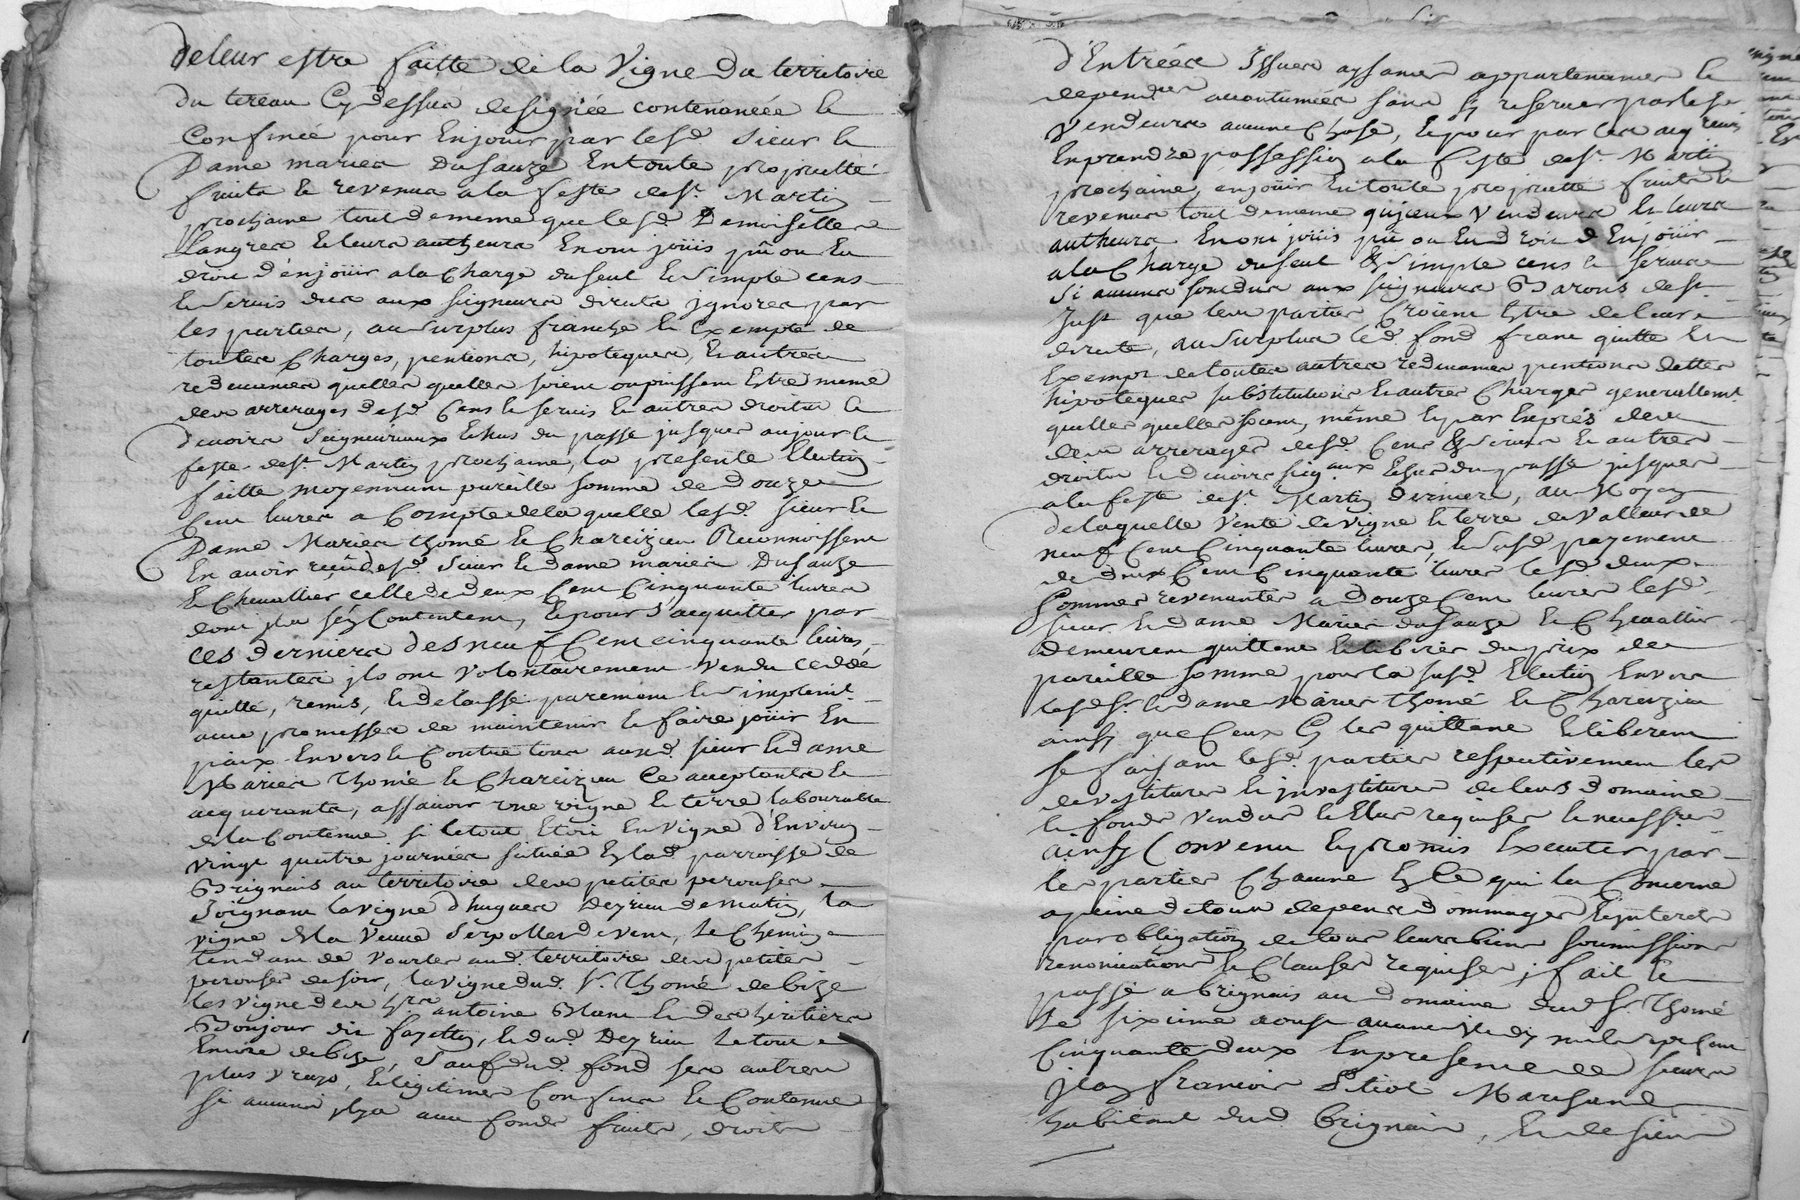 deleur estre faitte de la Vigne du territoire
du tereau Cy dessus designée contenancée &
Confinée pour En jouir par lesd. Sieur &
Dame mariés Dusauze En toute proprietté
fruits & revenus a la feste de st. Martin
prochaine tout de meme que lesd. Demoiselles
Langres & leurs autheurs En ont joüis pû ou du
droit d'en joüir a la Charge du seul & Simple cens
& Servis dus aux seigneurs directs ignorés par
les parties, au Surplus franche & Exempte de
toutes Charges, pentions, hipoteques, & autres
redevances quelles quelles soient ou puissent Estre meme
des arrerages desd. Cens & servis & autres droits &
devoirs Seigneuriaux Echus du passé jusques aujour &
feste de st. Martin prochaine, la presente Election
faitte moyennant pareille somme de douze
Cent livres a Compte de la quelle lesd. Sieur &
Dame Mariés thomé & Chareizieu Reconnoissent
En avoir reçû desd. Sieur & dame mariés Dusauze
& Chevallier celle de deux Cent Cinquante livres
dont ils se Contentent, & pour S'acquitter par
ces derniers des neuf Cent cinquante livres,
restantes ils ont volontairement vendu ceddé
quitté, remis, & delaissé purement & simplemt.
avec promesses de maintenir & faire joüir En
paix Envers & Contre tous auxd. sieur & Dame
Mariés Thomé & Chareizieu Ce acceptants &
acquerants, assavoir une vigne & terre labourable
de la Contenue si le tout Etoit En vigne d'Environ
vingt quatre journées située En lad. parroisse de
Brignais au territoire des petites perouses
Joignant la vigne d'hugues Deyrieu de matin, la
vigne de la Veuve de vent, le Chemin
tendant de Vourles aud. territoire des petites
perouses de soir, la vigne dud. Sr. Thomé de bize
les vignes des hers antoine Blanc & des heritiers
Bonjour dit fayetton, & dud. Deyrieu le tout
Encore de bize, Sauf dud. fond ses autres
plus vrays, & legitimes Confins & Contenue
si aucuns il y a avec fonds fruits, droits
d'Entrées Issues aysances appartenances &
dependces. accoutumées sans s'y reserver par lesd.
Vendeurs aucune Chose, & pour par les acqreurs
En prendre possession a la feste de st. Martin
prochaine, en joüir En toute proprietté fruits &
revenus tout de meme qu'iceux Vendeurs & leurs
autheurs En ont joüis pû ou Eu droit d'En joüir
a la Charge du seul & Simple cens & servis
si aucuns sont dus aux seigneurs Barons de st.
Just que les parties Croient Estre de leur
directe, au Surplus led. fond franc quitte &
Exempt de toutes autres redevances pentions dettes
hipoteques substitutions & autres Charges generallemt.
quelles quelles soient, même & par Exprés des
des arrerages desd. Cens & Servis & autres
droits & devoirs seigaux Echus du passé jusques
a la feste de st. Martin derniere, au Moyen
de laquelle vente de vigne & terre de Valleur de
neuf Cent Cinquante livres, & susd. payement
de deux Cent Cinquante livres lesd. deux
Sommes revenantes a douze Cent livres lesd.
sieur & dame Mariés dusauze & Chevallier
demeurent quittes & liberés du prix de
pareille somme pour la susd. Election Envers
lesd. Sr. & dame Mariés Thomé & Chareizieu
ainsy que Ceux Cy les quittent & liberent
se faisant lesd. parties respectivement les
devestitures & investitures de leurs domaine
& fonds vendus & Elus requises & necessres
ainsy Convenu & promis Executer par
les parties Chacune En Ce qui la Concerne
a peine de tous depens dommages & interets
par obligation de tous leurs biens soumissions
renonciations & Clauses requises; fait &
passé a Brignais au Domaine dud. Sr. Thomé
le sixieme aoust avant midy mil sept Cent
Cinquante deux En presence de sieurs
Jean francois Pitiot Marchand
habitant dud. Brignais, & de sieur